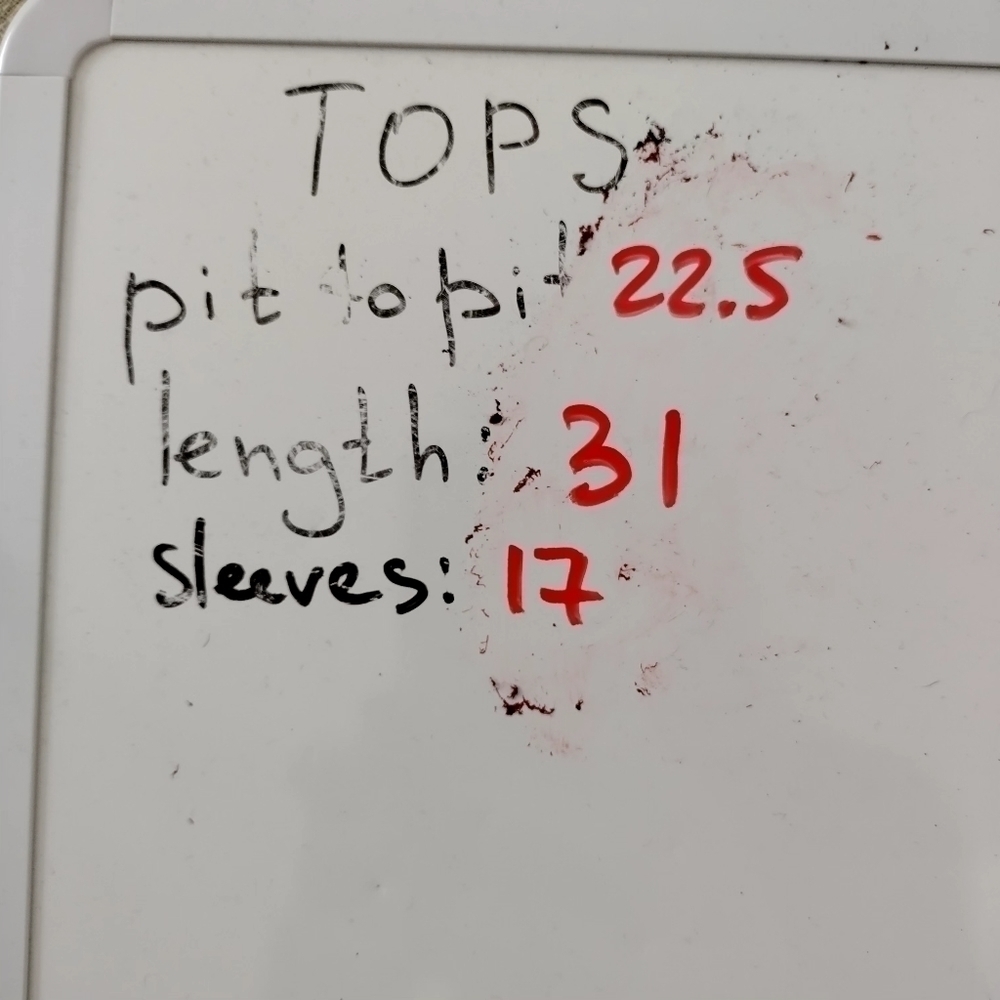 TOPS
pit to pit 22.5
length: 31
sleeves: 17